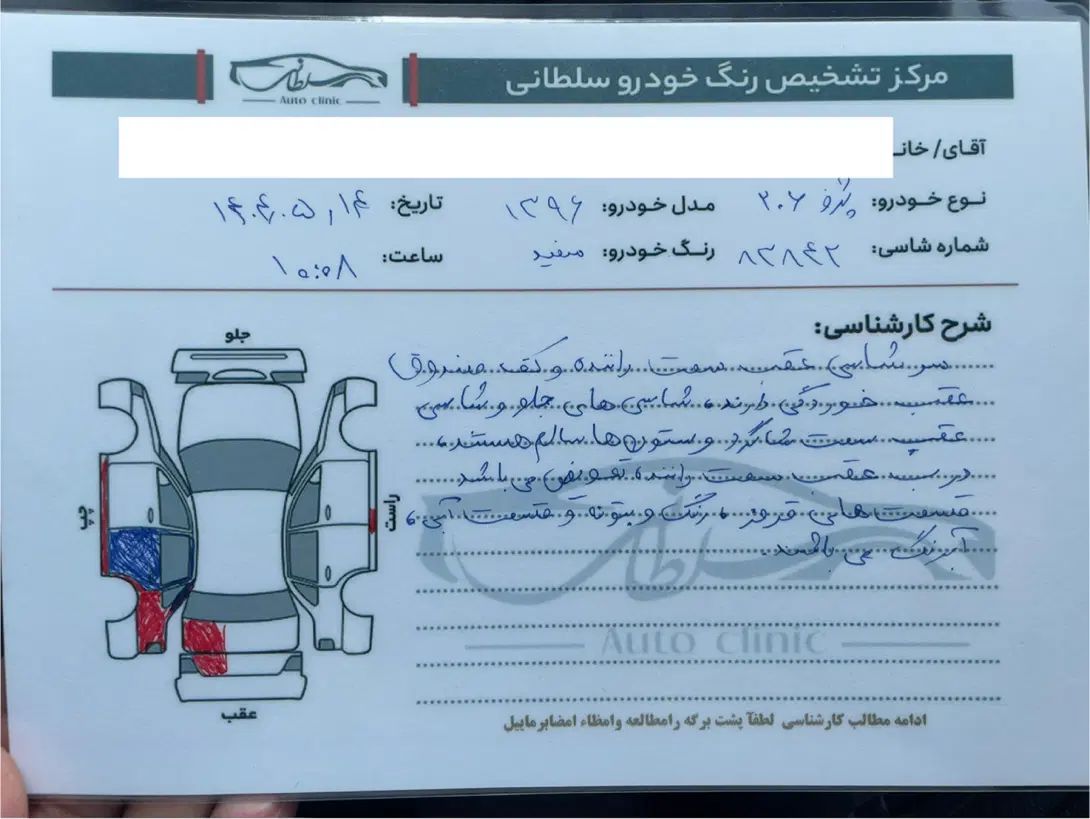 مرکز تشخیص رنگ خودرو سلطانی
سلطانی
Auto clinic
آقای/ خانـ
نـوع خـودرو: پژو ۲۰۶ مـدل خـودرو: ۱۳۹۶ تاریخ: ۱۴۰۴,۰۵,۱۴
شماره شاسی: ۸۳۸۴۲ رنـگ خـودرو: سفید ساعت: ۱۰:۰۸
شرح کارشناسی:
سر شاسی عقب سمت راننده و کف صندوق
عقب خوردگی دارند، شاسی های جلو و شاسی
عقب سمت شاگرد و ستون ها سالم هستند،
درب عقب سمت راننده تعویض می باشد
قسمت های قرمز، رنگ و بتونه و قسمت آبی،
آبرنگ می باشند.
جلو
چپ
راست
عقب
سلطانی
Auto clinic
ادامه مطالب کارشناسی لطفآ پشت برگه رامطالعه وامظاء امضابرماییل